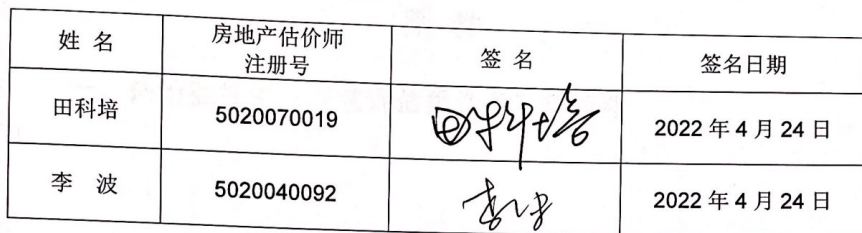 姓 名 房地产估价师 签 名 签名日期
注册号
田科培 5020070019 田科培 2022 年 4 月 24 日
李 波 5020040092 李波 2022 年 4 月 24 日